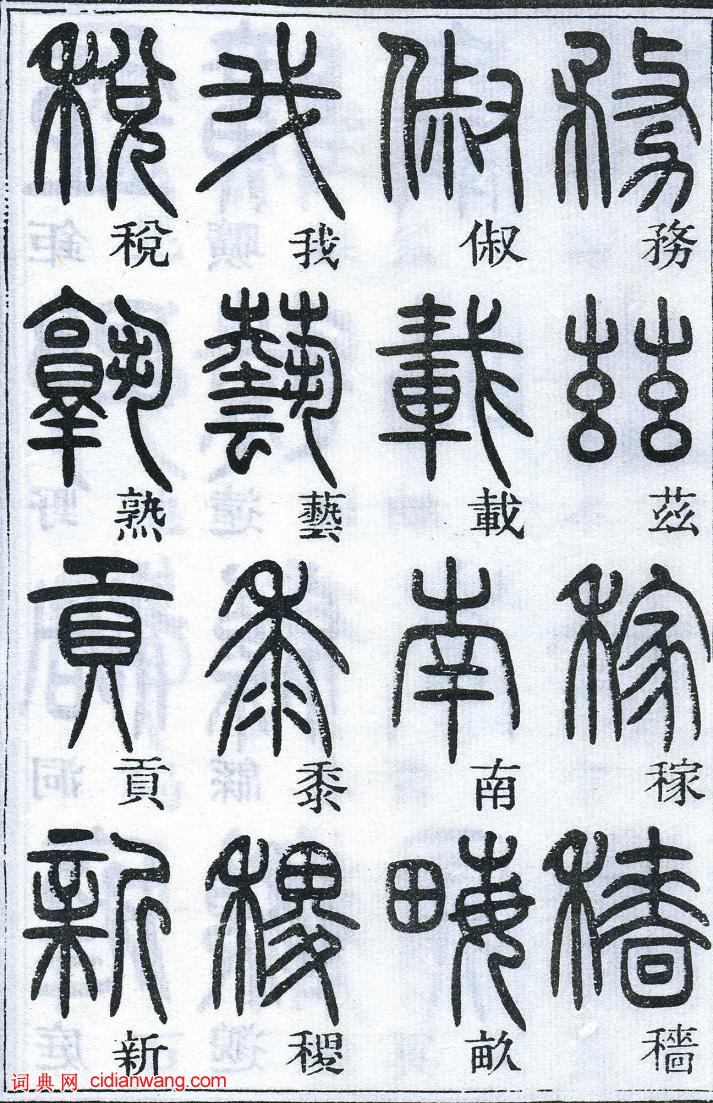 務茲稼穡
俶載南畝
我藝黍稷
稅熟貢新
词典网 cidianwang.com